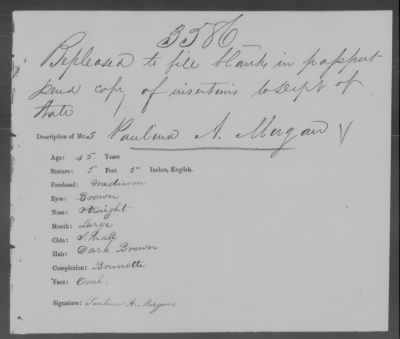 3586
Be pleased to file blanks in passport
send copy of insertions to Dept of
State
Description of Mrs Paulina A. Morgan
Age: 45 Years
Stature: 5 Feet 5" Inches, English.
Forehead: Medium
Eyes: Brown
Nose: Straight
Mouth: Large
Chin: Small
Hair: Dark Brown
Complexion: Brunette
Face: Oval.
Signature: Paulina A. Morgan